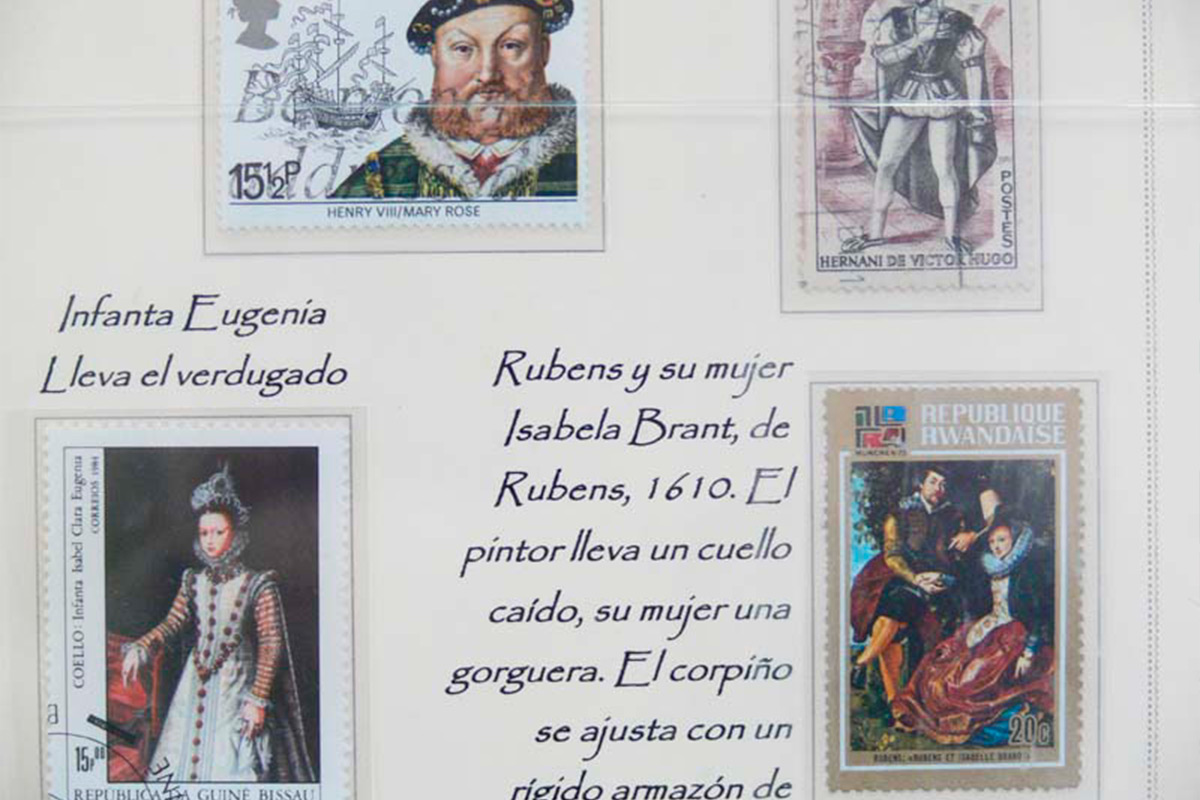 15½P
HENRY VIII/MARY ROSE
POSTES
HERNANI DE VICTOR HUGO
Infanta Eugenia
Lleva el verdugado
COELLO: Infanta Isabel Clara Eugenia
CORREIOS 1984
15,00
REPUBLICA DA GUINÉ BISSAU
Rubens y su mujer
Isabela Brant, de
Rubens, 1610. El
pintor lleva un cuello
caído, su mujer una
gorguera. El corpiño
se ajusta con un
rígido armazón de
REPUBLIQUE
RWANDAISE
20c
RUBENS: «RUBENS ET ISABELLE BRANT»